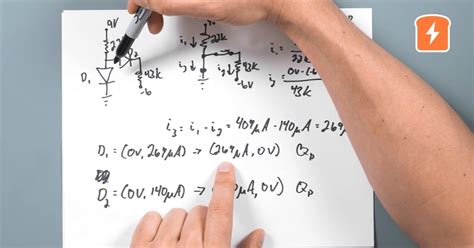 9V
22k
D₁
43k
-6
i₁ ↓ 22k
i₃ ↓
i₂ ↓ 43k
-6V
i₁ =
22k
i₂ = 0V-(-6
43k
i₃ = i₁ - i₂ = 409μA - 140μA = 269μ
D₁ = (0V, 269μA) → (269μA, 0V) Q_D
D₂ = (0V, 140μA) → 0μA, 0V) Q_D